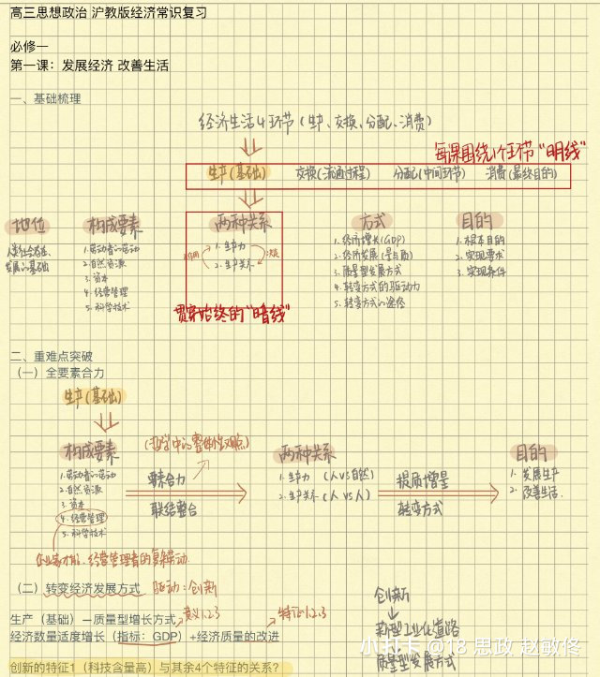 高三思想政治 沪教版经济常识复习
必修一
第一课：发展经济 改善生活
一、基础梳理
经济生活4环节（生产、交换、分配、消费）
每课围绕1个环节“明线”
生产（基础） 交换（流通过程） 分配（中间环节） 消费（最终目的）
地位 构成要素 两种关系 方式 目的
发展的基础
1.劳动者的劳动
2.自然资源
3.资本
4.经营管理
5.科学技术
1.生产力
2.生产关系
1.经济增长（GDP）
2.经济发展（量与质）
3.质量型发展方式
4.转变方式的驱动力
5.转变方式的途径
1.根本目的
2.实现要求
3.实现条件
贯穿始终的“暗线”
二、重难点突破
（一）全要素合力
生产（基础）
构成要素 （哲学中的整体性观点） 两种关系 目的
1.劳动者的劳动
2.自然资源
3.资本
4.经营管理
5.科学技术
要素合力
联结整合
1.生产力（人VS自然）
2.生产关系（人VS人）
提质增量
转变方式
1.发展生产
2.改善生活
企业家才能、经营管理者的复杂劳动
（二）转变经济发展方式 驱动：创新
生产（基础）—质量型增长方式 意义1.2.3 特征1.2.3
经济数量适度增长（指标：GDP）+经济质量的改进
创新
新型工业化道路
质量型发展方式
创新的特征1（科技含量高）与其余4个特征的关系？
小打卡 @18 思政 赵敏佟